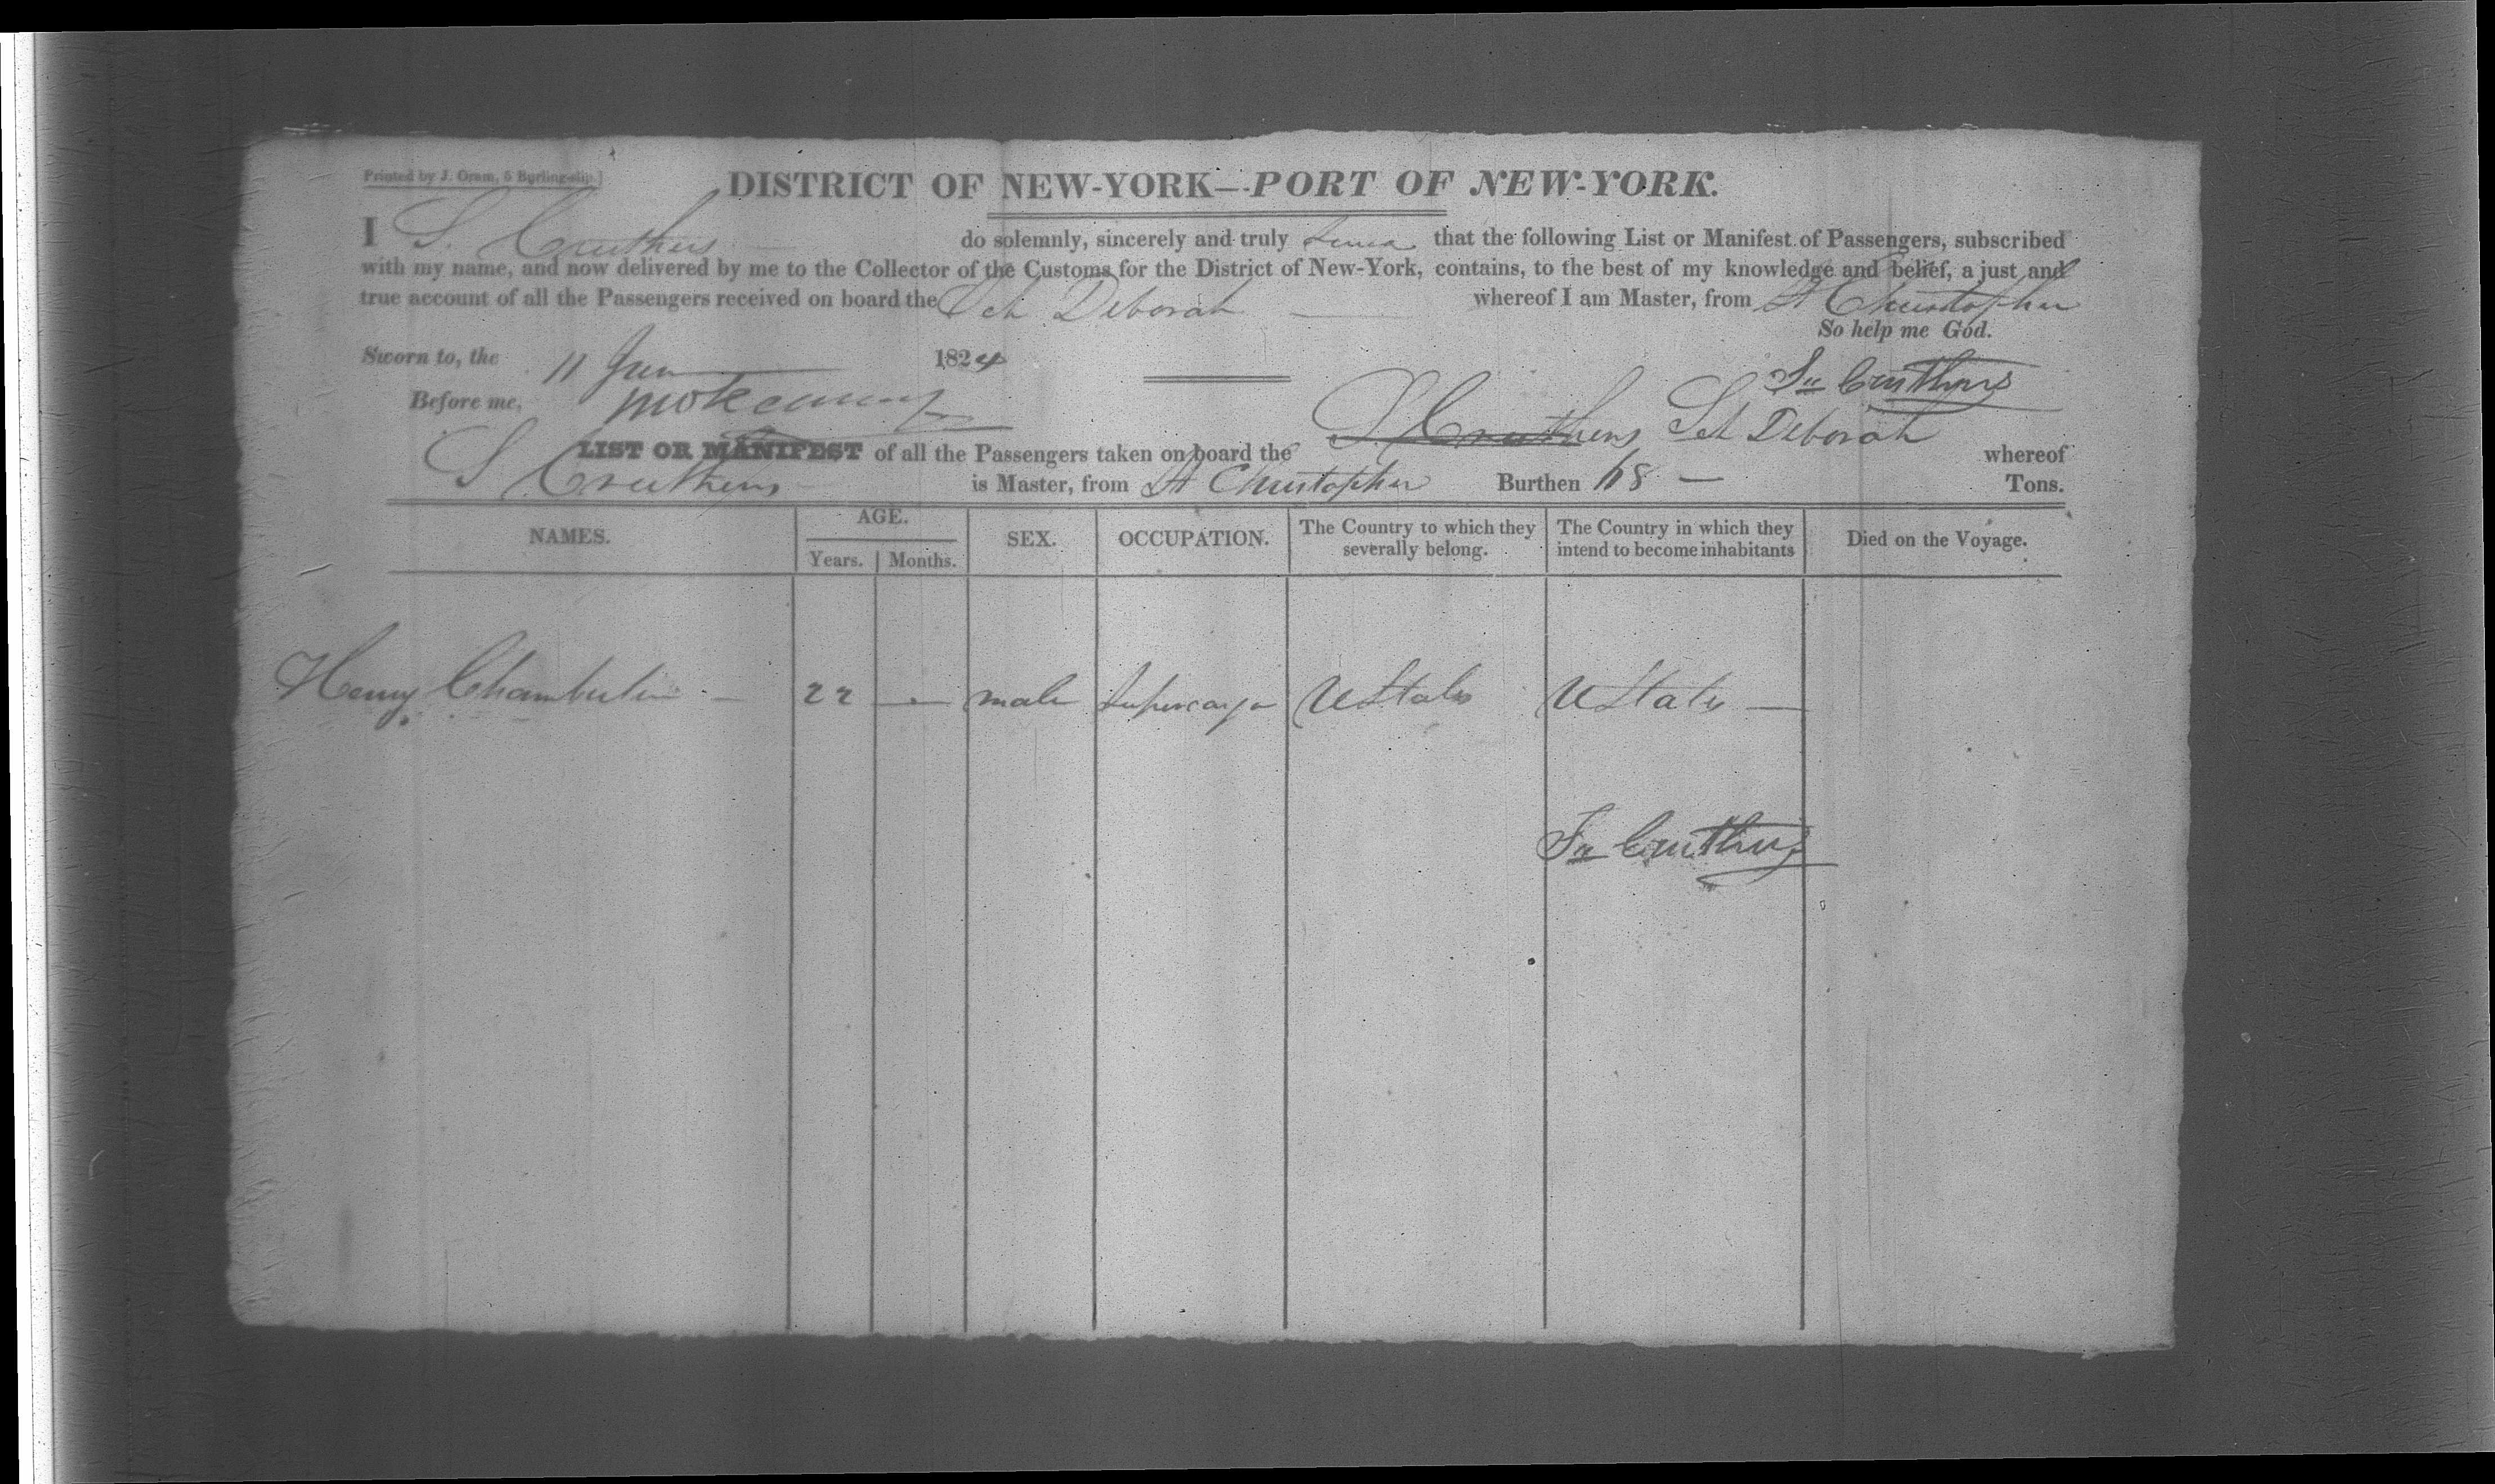 Printed by J. Oram, 5 Burling-slip.]
DISTRICT OF NEW-YORK—PORT OF NEW-YORK.
I S. Cruthers do solemnly, sincerely and truly that the following List or Manifest of Passengers, subscribed
with my name, and now delivered by me to the Collector of the Customs for the District of New-York, contains, to the best of my knowledge and belief, a just and
true account of all the Passengers received on board the Sch Deborah whereof I am Master, from St Christopher
So help me God.
Sworn to, the 11 1824
Cruthers
Before me,
S Cruthers Sch Deborah
LIST OR MANIFEST of all the Passengers taken on board the whereof
S Cruthers is Master, from St Christopher Burthen 68 — Tons.
NAMES. AGE. SEX. OCCUPATION. The Country to which they severally belong. The Country in which they intend to become inhabitants Died on the Voyage.
Years. Months.
Henry Chamberlin — 22 — male Supercargo UStates UStates —
Cruthers